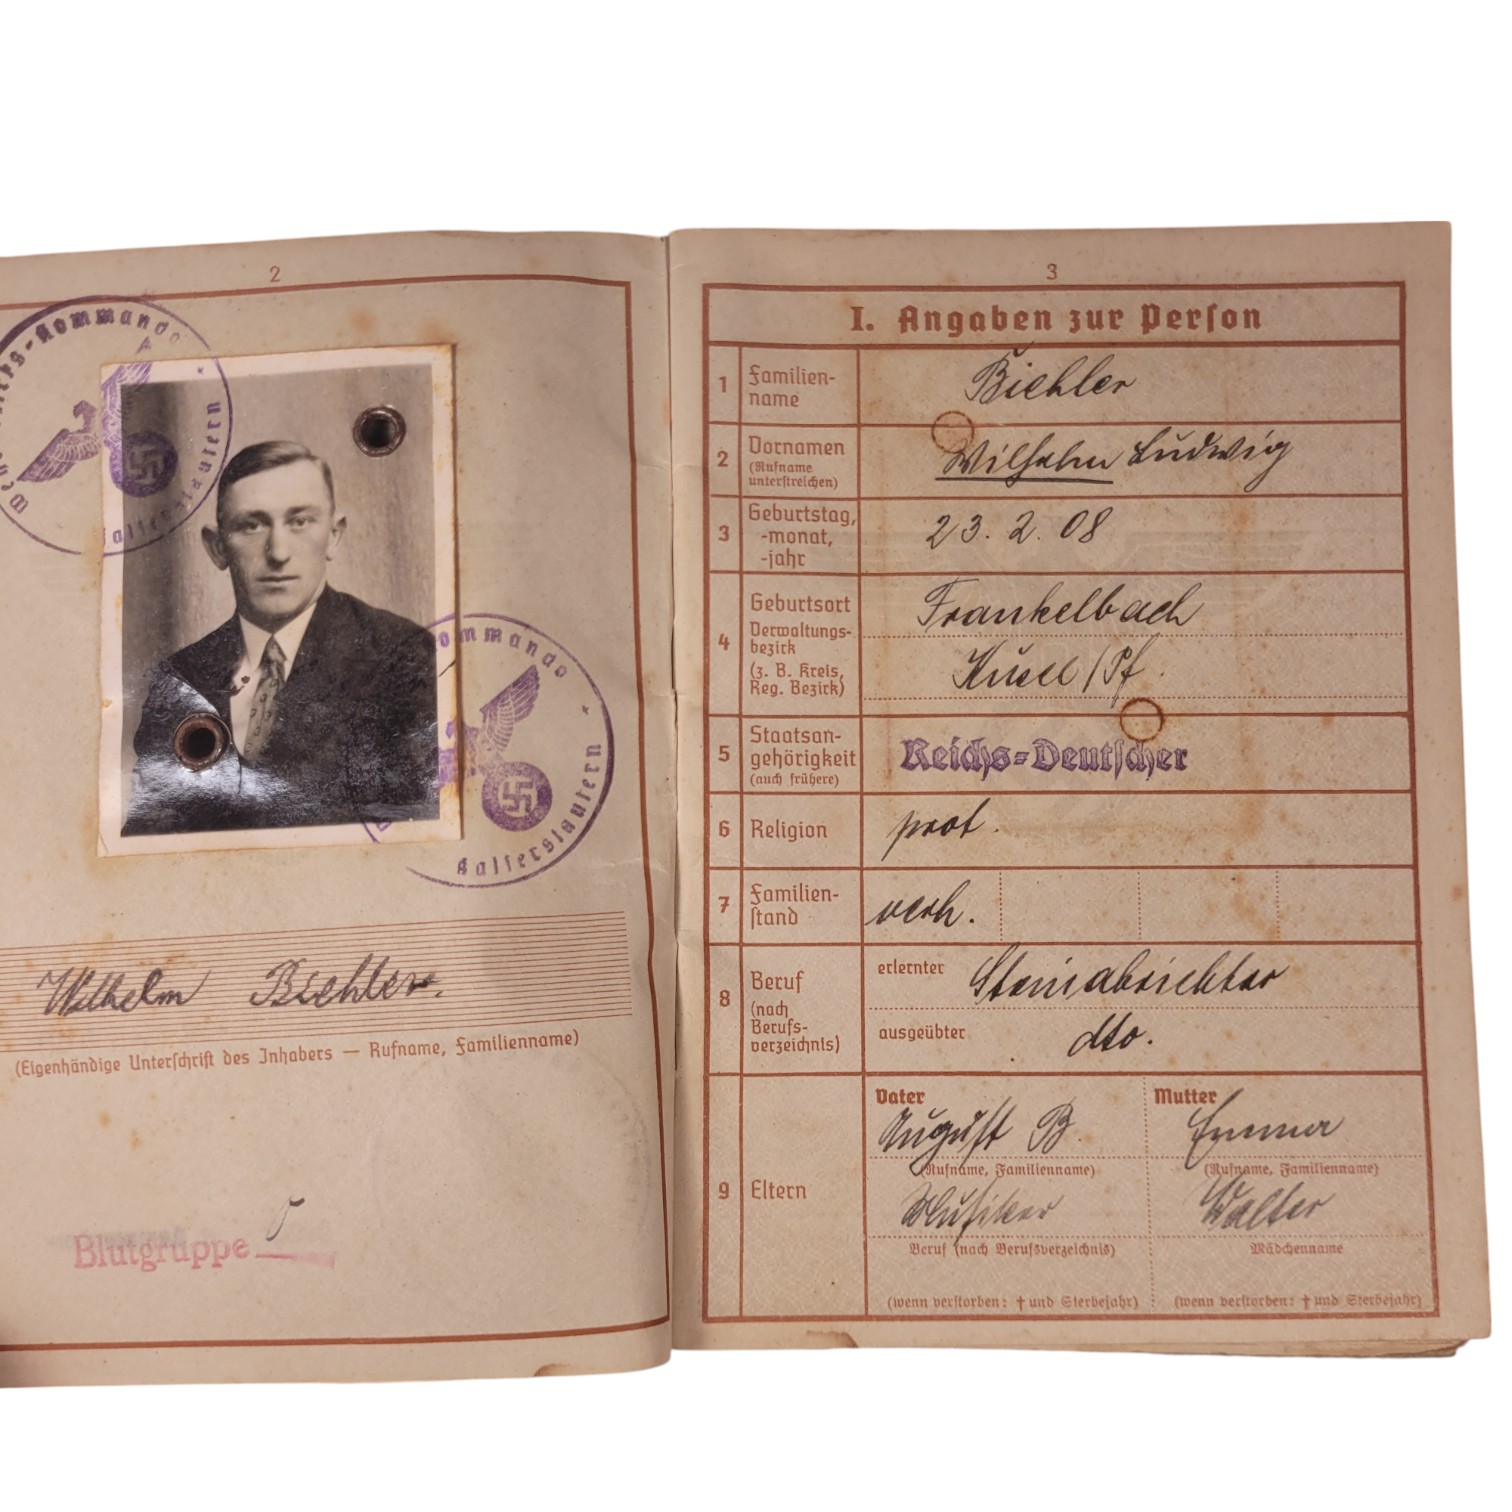 2
Kommando
Kaiserslautern
Kommando
Kaiserslautern
Wilhelm Biehler.
(Eigenhändige Unterschrift des Inhabers — Rufname, Familienname)
Blutgruppe 0
3
I. Angaben zur Person
1 Familien-
name
Biehler
2 Vornamen
(Rufname
unterstreichen)
Wilhelm Ludwig
3 Geburtstag,
-monat,
-jahr
23. 2. 08
4 Geburtsort
Verwaltungs-
bezirk
(z. B. Kreis,
Reg. Bezirk)
Frankelbach
Kusel/Pf.
5 Staatsan-
gehörigkeit
(auch frühere)
Reichs-Deutscher
6 Religion
prot.
7 Familien-
stand
verh.
8 Beruf
(nach
Berufs-
verzeichnis)
erlernter Steinabrichter
ausgeübter dto.
9 Eltern
Vater Mutter
August B. Emma
(Rufname, Familienname) (Rufname, Familienname)
Musiker Walter
Beruf (nach Berufsverzeichnis) Mädchenname
(wenn verstorben: † und Sterbejahr) (wenn verstorben: † und Sterbejahr)